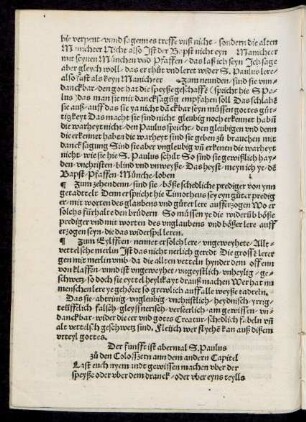 hie verpeut · vnnd sagenn es treffe vnß nicht · sondern die alten
Manicheer Nicht also Jst der Bepst nicht eyn Manicheer
mit seynen München vnd Pfaffen · das laß ich seyn Jch sage
aber gleych woll · das er thüt vnd leret wider S. Paulus lere ·
also süst als keyn Manicheer Zum neunden · sind sie vn-
danckbar · den got hat die speyße geschaffē (spricht hie S. Pe
lus) das man sie mit dancksagūg empfahen soll Das
auß · auff das sie ya nicht dāckbar seyn müssen
Gottes güt
tigkeyt Das macht sie sind nicht gleubig noch erkennet ha bē
die warheyt nicht · den Paulus spricht · den gleubigen vnd denen
die erkennet haben die warheyt sind sie geben zu brauchen mit
dancksagung Sind sie aber vngleubig vnd erkennen die warheyt
nicht · wie sie hie S. Paulus schilt So sind sie gewißlich hay-
den · vnchristen · blind vnd vnweyße · Das heyst · meyn ich ye dē
Bapst · Pfaffen · Münche · loben
¶ Zum zehendenn · sind sie · böße schedliche prediger von ynn
geradtelt Denn er spricht hie Timotheus sey eyn güter predig
er · mit worten des glaubens vnd gůter lere aufferzogen Wo er
solchs fürhalte den brüdern So müssen ye die widerūb böße
prediger vnd mit worten des vnglaubens vnd bößer lere auff
erzogen seyn · die das widerspil leren
¶ Zum Eylfften · nannet er solch lere · vngeweyhete · Alle-
vettelsche merlin Jst das nicht nerlich geredt Die groß
ler mit merlin vmb · da die allten vetteln hynder dem offenn
von klaffen · vnd ist vngeweyhet · vngeystlich · vnheylig · ge-
schwetz · so doch sie eyttel heylickayt drauß machen Wer hat nu
menschenlere ye so grewlich antzogen auff alle weyße tadeln
Das sie · aberinig · vngleubig · vnchristlich · heydnisch · yrrig ·
teüffelisch · falsch · gleyßnerisch · verseerlich · am gewissen · vn-
danckbar · wider die eer vnd gottes Creatur · schedlich fabeln vn̄
alt vettelisch geschwetz sind Fleüch wer flyehē kan auß dißem
vrteyl gottes ·
Der funfft ist abermal S. Paulus
zů den Colossern ann dem andern Capitel
Last euch nyemandt gewissen machen vber der
speyße oder vber dem dranck · oder vber eyns teylls